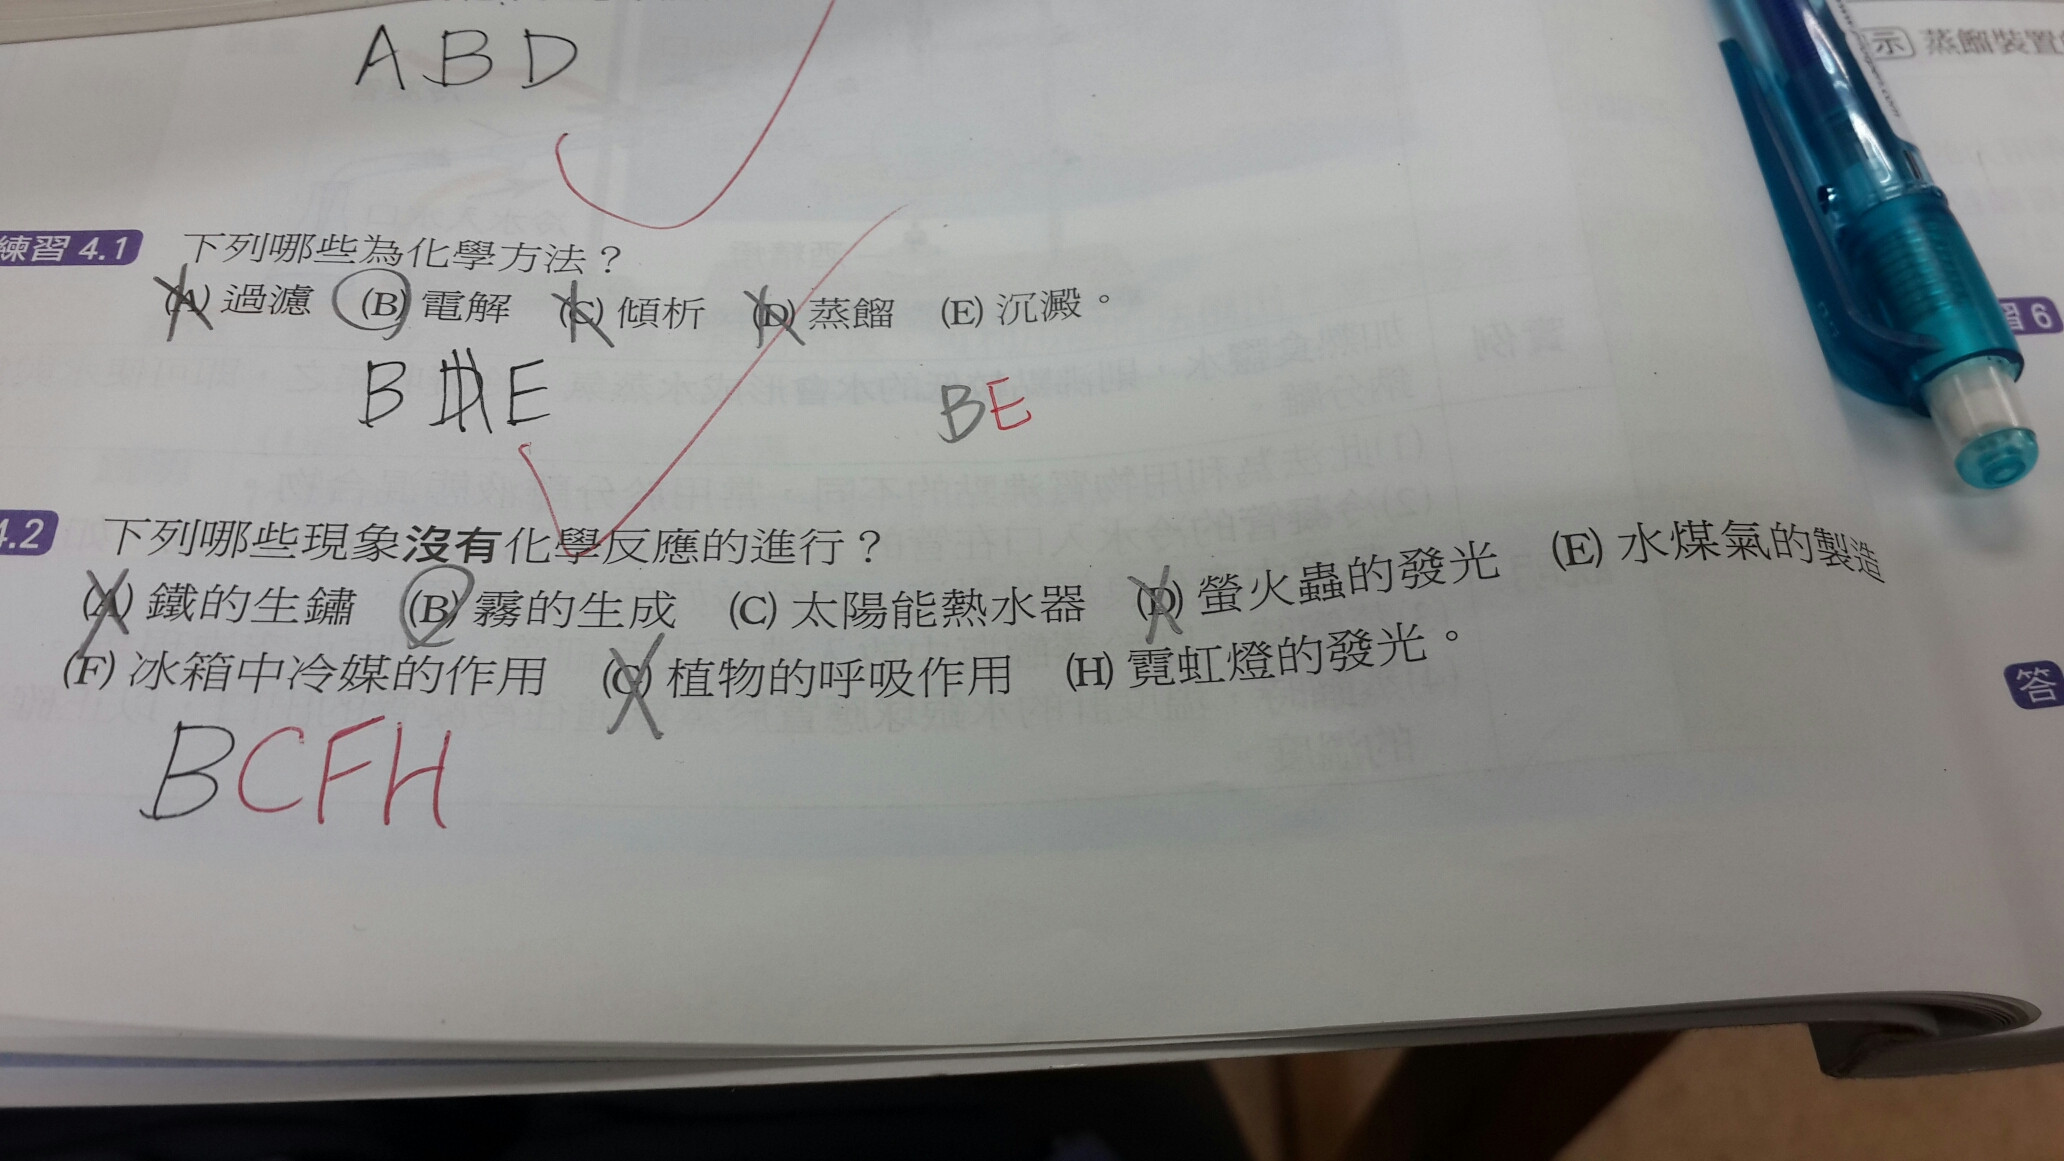 ABD
示 蒸餾裝置
練習 4.1 下列哪些為化學方法？
(A) 過濾 (B) 電解 (C) 傾析 (D) 蒸餾 (E) 沉澱。
B D E
BE
習 6
4.2 下列哪些現象沒有化學反應的進行？
(A) 鐵的生鏽 (B) 霧的生成 (C) 太陽能熱水器 (D) 螢火蟲的發光 (E) 水煤氣的製造
(F) 冰箱中冷媒的作用 (G) 植物的呼吸作用 (H) 霓虹燈的發光。
答
BCFH